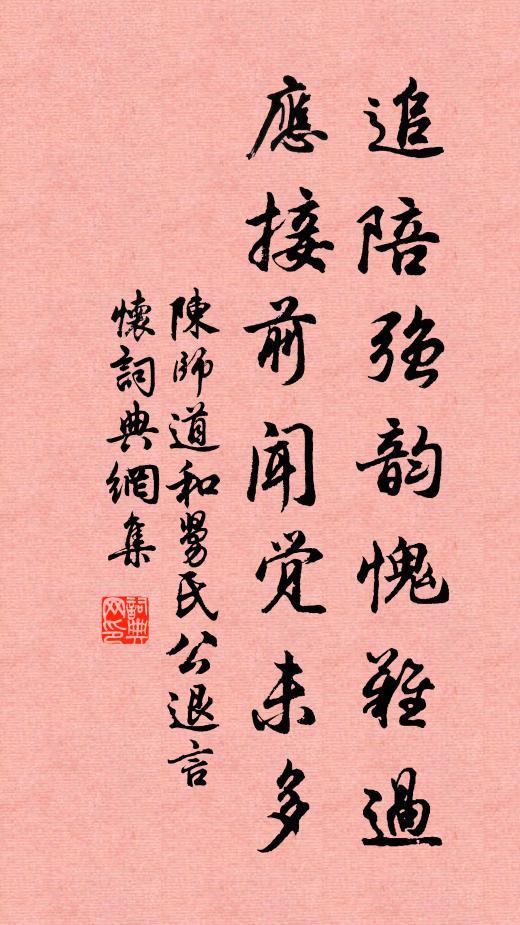 追陪強韵愧難過
應接前闻覚未多
陳師道和勇民公退言
懷詞典網集
詞典网印